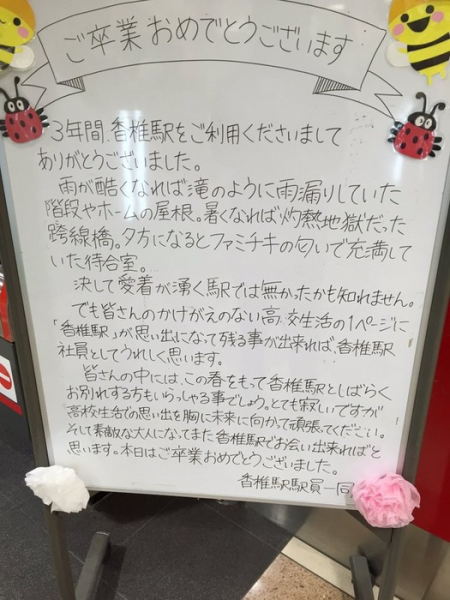 ご卒業おめでとうございます
3年間、香椎駅をご利用くださいまして
ありがとうございました。
雨が酷くなれば滝のように雨漏りしていた
階段やホームの屋根。暑くなれば灼熱地獄だった
跨線橋。夕方になるとファミチキの匂いで充満して
いた待合室。
決して愛着が湧く駅では無かったかも知れません。
でも皆さんのかけがえのない高校生活の1ページに
「香椎駅」が思い出になって残る事が出来れば、香椎駅
社員としてうれしく思います。
皆さんの中には、この春をもって香椎駅としばらく
お別れする方もいらっしゃる事でしょう。とても寂しいですが
高校生活での思い出を胸に未来に向かって頑張ってください。
そして素敵な大人になってまた香椎駅でお会い出来ればと
思います。本日はご卒業おめでとうございました。
香椎駅駅員一同